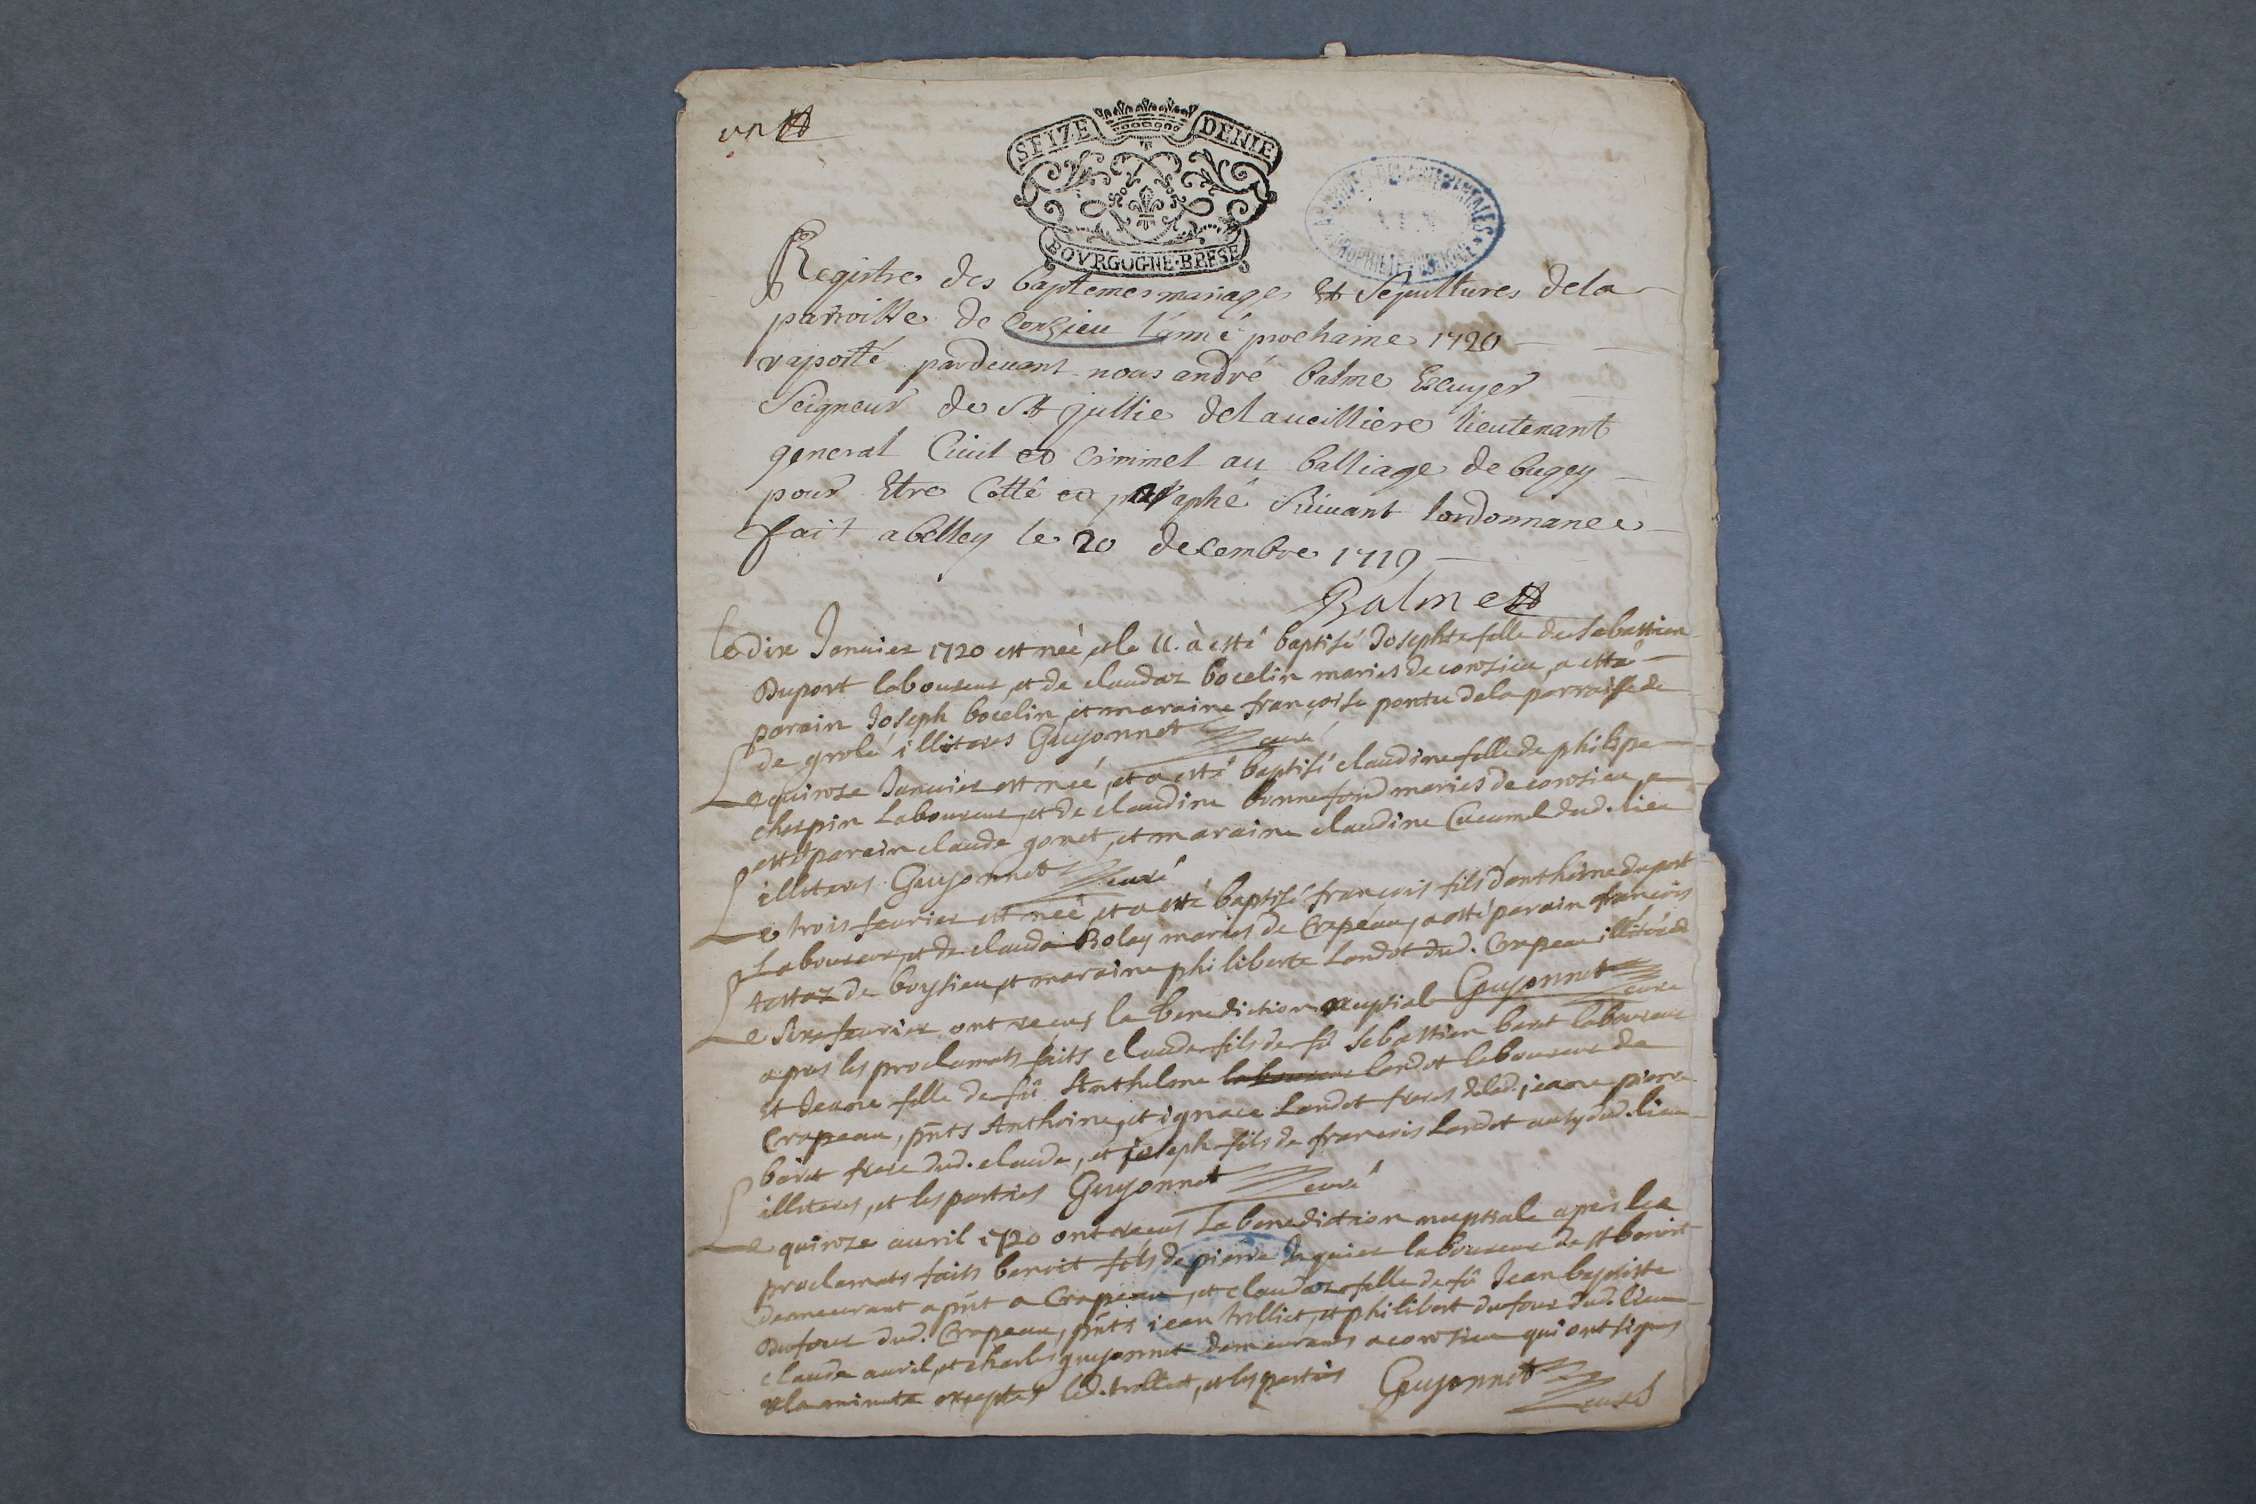 un
SEIZE DENIE
BOVRGOGNE·BRESSE
Registre des baptemes mariages et Sepultures dela
parroisse de Conzieu l'anné prochaine 1720
raporté pardevant nous andré balme Escuyer
Seigneur de St jullie delaveilliere lieutenant
general Civil et Criminel au balliage de bugey
pour Etre Cotté et paraphé Suivant lordonnance
fait abelley le 20 decembre 1719
Balme
Le dix Januier 1720 est neé, et le 11. à esté baptisé Josephte fille de Sebastien
Duport laboureur, et de claudaz bocelin mariés de conzieu, a esté
parain Joseph bocelin, et maraine françoise pontu dela parroisse de
de grolé illiteres Guyonnet curé
Le quinze Januier est neé, et a esté baptisé claudine fille de philippe
chespin Laboureur, et de claudine bonnefond mariés de conzieu, a
esté parain claude gonet, et maraine claudine Cucumel dud. lieu
illiteres Guyonnet curé
Le trois feurier est neé, et a esté baptisé françois fils d'anthoine duport
Laboureur, et de claudaz Bolay mariés de Crapeau, a esté parain françois
tettaz de boysieu, et maraine philiberte Landot dud. Crapeau illiteres
Guyonnet curé
Le Sixe feurier ont receus la benediction nuptiale
apres les proclamats faits claude fils de fû Sebastien baret laboureur
et Jeane fille de fû Anthelme laboureur landot laboureur de
Crapeau, pnts Anthoine, et ignace Landot freres delad. jeane pierre
baret frere dud. claude, et joseph fils de francois Landot aussy dud. lieu
illiteres, et les parties Guyonnet curé
Le quinze auril 1720 ont receus La benediction nuptiale apres les
proclamats faits benoit fils de pierre laboureur de st benoit
demeurant a pnt a Crapeau, et claudaz fille de fû Jean baptiste
Dufour dud. Crapeau, pnts jean trolliet, et philibert dufour dud. lieu
claude auril, et charles guyonnet demeurans a conzieu qui ont signés
a la minute exceptés led. trolliet, et les parties Guyonnet curé